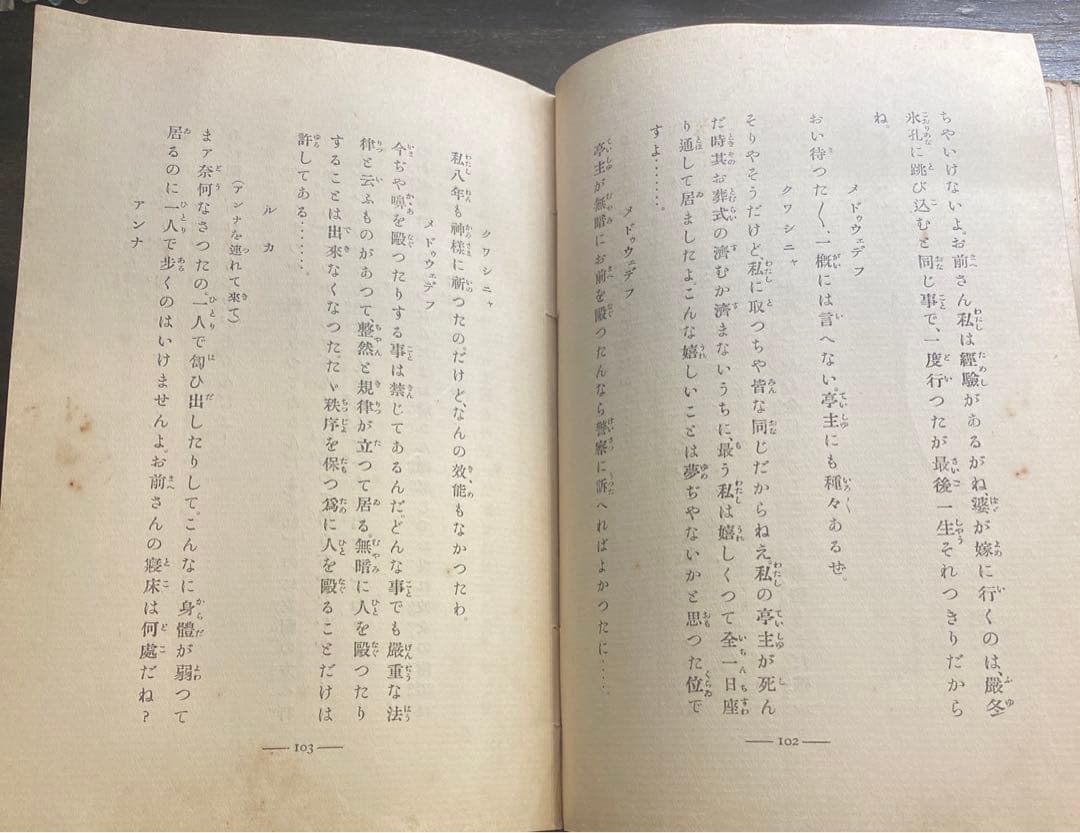 ちやいけないよ。お前さん私は經驗があるがね、婆が嫁に行くのは、嚴冬
氷孔に跳び込むと同じ事で、一度行つたが最後一生それつきりだから
ね。
メドウェデフ
おい待つた〱、一概には言へない。亭主にも種々あるぜ。
クワシニャ
そりやそうだけど、私に取つちや皆な同じだからねえ、私の亭主が死ん
だ時其お葬式の濟むか濟まないうちに、最う私は嬉しくつて全一日座
り通して居ましたよ。こんな嬉しいことは夢ぢやないかと思つた位で
すよ‥‥‥
メドウェデフ
亭主が無暗にお前を毆つたんなら警察に訴へればよかつたに‥‥
— 102 —
クワシニャ
私八年も神樣に祈つたのだけど、なんの效能もなかつたわ。
メドウェデフ
今ぢや嚊を毆つたりする事は禁じてあるんだ。どんな事でも嚴重な法
律と云ふものがあつて、整然と規律が立つて居る。無暗に人を毆つたり
することは出來なくなつた。たゞ秩序を保つ爲に人を毆ることだけは
許してある‥‥‥。
ルカ
(アンナを連れて來て)
まァ奈何なさつたの。一人で匐ひ出したりして。こんなに身體が弱つて
居るのに一人で步くのはいけませんよ。お前さんの寢床は何處だね?
アンナ
— 103 —